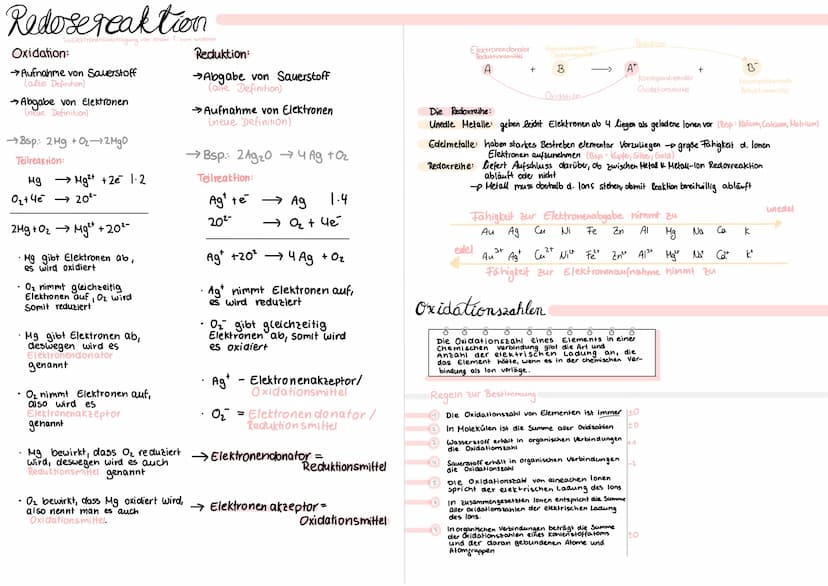 Redoxreaktion
Oxidation:
→ Aufnahme von Sauerstoff
(alte Definition)
→ Abgabe von Elektronen
(neue Definition)
→ Bsp.: 2Mg + O₂ → 2MgO
Teilreaktion:
Mg → Mg²⁺ + 2e⁻ | · 2
O₂ + 4e⁻ → 2O²⁻
2Mg + O₂ → Mg²⁺ + 2O²⁻
· Mg gibt Elektronen ab,
es wird oxidiert
· O₂ nimmt gleichzeitig
Elektronen auf, O₂ wird
somit reduziert
· Mg gibt Elektronen ab,
deswegen wird es
Elektronendonator
genannt
· O₂ nimmt Elektronen auf,
also wird es
Elektronenakzeptor
genannt
· Mg bewirkt, dass O₂ reduziert
wird, deswegen wird es auch
Reduktionsmittel genannt
· O₂ bewirkt, dass Mg oxidiert wird,
also nennt man es auch
Oxidationsmittel.
Reduktion:
→ Abgabe von Sauerstoff
(alte Definition)
→ Aufnahme von Elektronen
(neue Definition)
→ Bsp.: 2Ag₂O → 4Ag + O₂
Teilreaktion:
Ag⁺ + e⁻ → Ag | · 4
2O²⁻ → O₂ + 4e⁻
Ag⁺ + 2O²⁻ → 4Ag + O₂
· Ag⁺ nimmt Elektronen auf,
es wird reduziert
· O₂⁻ gibt gleichzeitig
Elektronen ab, somit wird
es oxidiert
· Ag⁺ - Elektronenakzeptor/
Oxidationsmittel
· O₂⁻ = Elektronendonator/
Reduktionsmittel
→ Elektronendonator =
Reduktionsmittel
→ Elektronenakzeptor =
Oxidationsmittel
Elektronendonator
Reduktionsmittel
Reduktion
A + B → A⁺ + B⁻
korrespondierender
Oxidationsmittel
Oxidation
Die Redoxreihe:
Unedle Metalle: geben leicht Elektronen ab & liegen als geladene Ionen vor (Bsp: Kalium, Calcium, Natrium)
Edelmetalle: haben starkes Bestreben elementar vorzuliegen → große Fähigkeit d. Ionen
Elektronen aufzunehmen (Bsp: Kupfer, Silber, Gold)
Redoxreihe: liefert Aufschluss darüber, ob zwischen Metall & Metall-Ion Redoxreaktion
abläuft oder nicht
→ Metall muss oberhalb d. Ions stehen, damit Reaktion freiwillig abläuft
unedel
Fähigkeit zur Elektronenabgabe nimmt zu
Au Ag Cu Ni Fe Zn Al Mg Na Ca K
edel
Au³⁺ Ag⁺ Cu²⁺ Ni²⁺ Fe²⁺ Zn²⁺ Al³⁺ Mg²⁺ Na⁺ Ca²⁺ K⁺
Fähigkeit zur Elektronenaufnahme nimmt zu
Oxidationszahlen
Die Oxidationszahl eines Elements in einer
chemischen Verbindung gibt die Art und
Anzahl der elektrischen Ladung an, die
das Element hätte, wenn es in der chemischen Ver-
bindung als Ion vorläge.
Regeln zur Bestimmung
1 Die Oxidationszahl von Elementen ist immer ±0
2 In Molekülen ist die Summe aller Oxidzahlen ±0
3 Wasserstoff erhält in organischen Verbindungen
die Oxidationszahl +1
4 Sauerstoff erhält in organischen Verbindungen
die Oxidationszahl -2
5 Die Oxidationszahl von einfachen Ionen
spricht der elektrischen Ladung des Ions
6 In zusammengesetzten Ionen entspricht die Summe
aller Oxidationszahlen der elektrischen Ladung
des Ions.
7 In organischen Verbindungen beträgt die Summe
der Oxidationszahlen eines Kohlenstoffatoms
und der daran gebundenen Atome und
Atomgruppen ±0